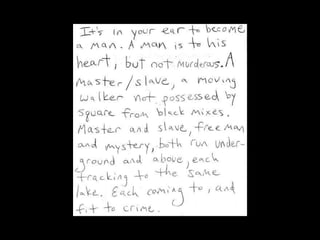 It's in your ear to become
a man. A man is to his
heart, but not murderous. A
master/slave, a moving
walker not possessed by
square from black mixes.
Master and slave, free man
and mystery, both run under-
ground and above, each
tracking to the same
lake. Each coming to, and
fit to crime.